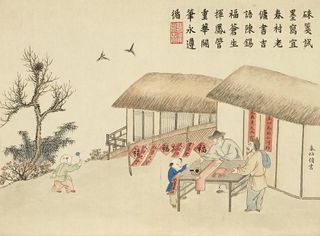 硃箋試
墨寫宜
春村老
傭書吉
語陳錫
福蒼生
揮鳳管
重華闕
筆永遵
循
福
福
福
春帖傭書